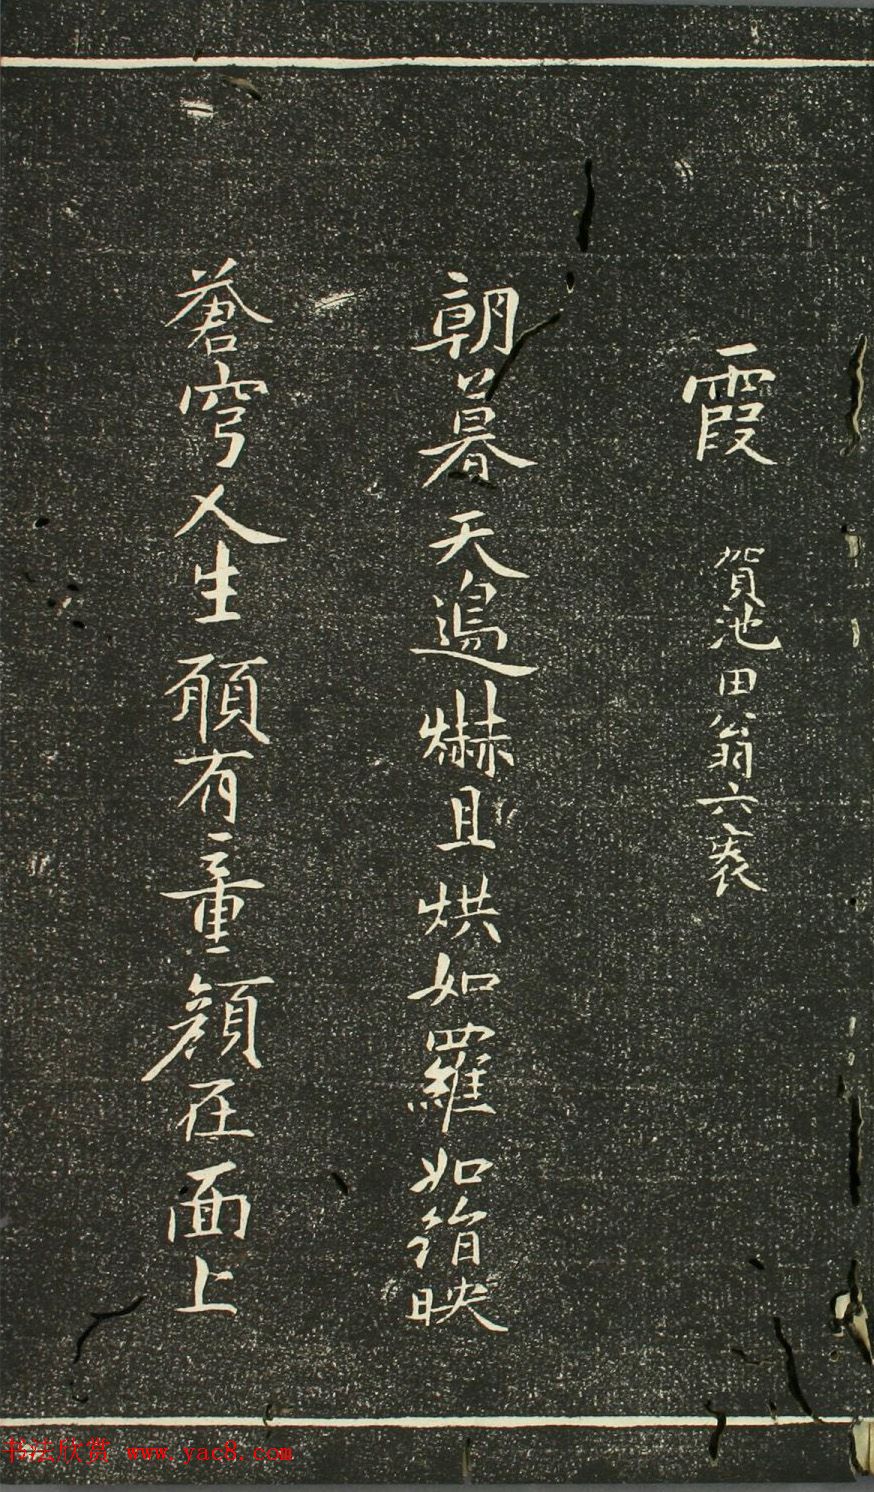 霞 賀池田翁六袠
朝暮天邉爀且烘如羅如映
蒼穹人生願有童顏在面上
书法欣赏 www.yac8.com